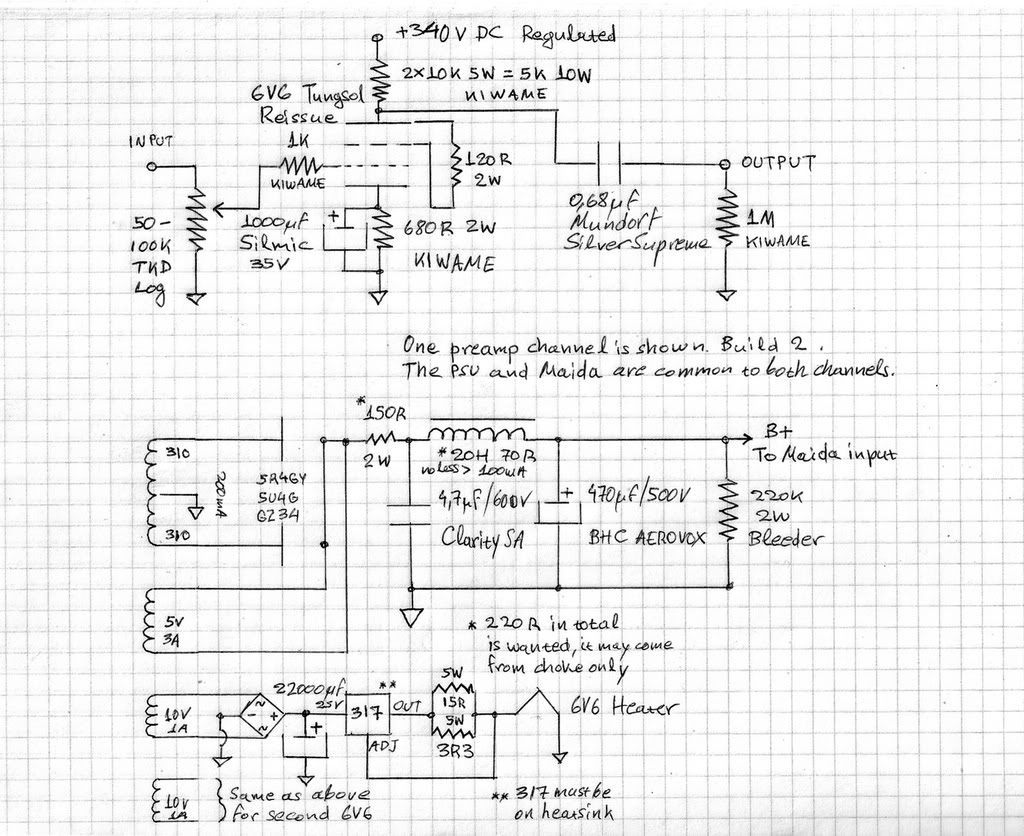 +340V DC Regulated
2x10K 5W = 5K 10W
KIWAME
6V6 Tungsol
Reissue
INPUT
1K
KIWAME
120R
2W
OUTPUT
50-
100K
TKD
Log
1000µF
Silmic
35V
+
680R 2W
KIWAME
0,68µF
Mundorf
SilverSupreme
1M
KIWAME
One preamp channel is shown. Build 2.
The PSU and Maida are common to both channels.
*150R
2W
*20H 70R
no less > 100mA
B+
To Maida input
310
310
200mA
5R4GY
5U4G
GZ34
4,7µF/600V
Clarity SA
+
470µF/500V
BHC AEROVOX
220K
2W
Bleeder
5V
3A
* 220R in total
is wanted, it may come
from choke only
10V
1A
~
- +
~
22000µF
25V
+
**
317
OUT
ADJ
5W
15R
5W
3R3
6V6 Heater
10V
1A
Same as above
for second 6V6
** 317 must be
on heatsink